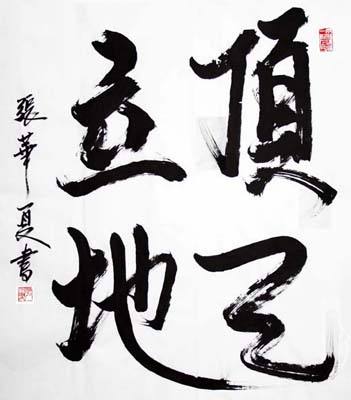 頂天
立地
張華夏書